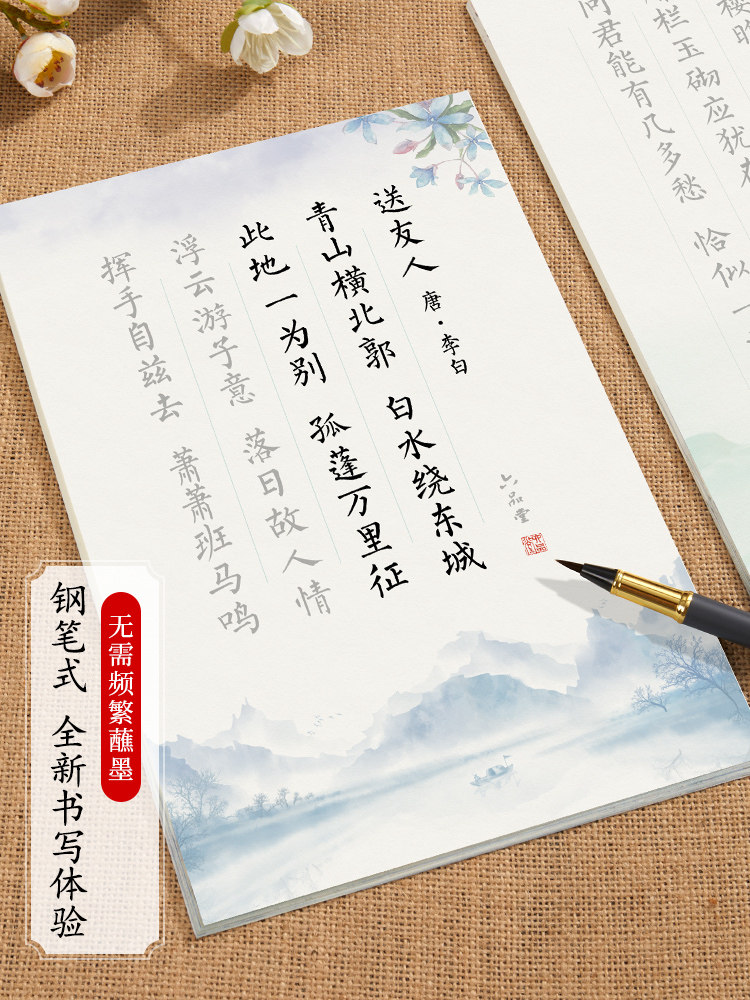 送友人 唐·李白
青山横北郭 白水绕东城
此地一为别 孤蓬万里征
浮云游子意 落日故人情
挥手自兹去 萧萧班马鸣
六品堂
楼昨
栏玉砌应犹
问君能有几多愁 恰似一
无需频繁蘸墨
钢笔式 全新书写体验